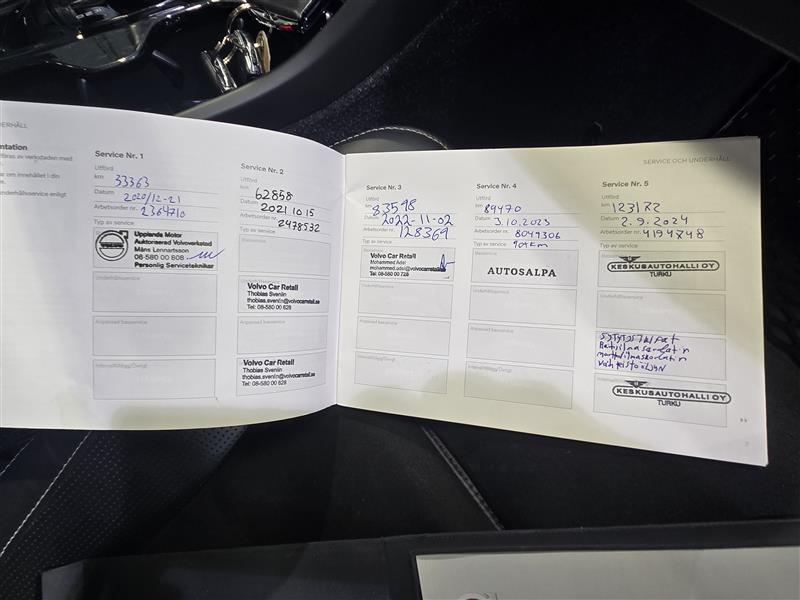 UNDERHÅLL
ntation
tföras av verkstaden med
ar om innehållet i din
underhållsservice enligt
Service Nr. 1
Utförd
km 33363
Datum 2020/12-21
Arbetsorder nr. 2364710
Typ av service
Upplands Motor
Auktoriserad Volvoverkstad
Måns Lennartsson
08-580 00 808
Personlig Servicetekniker
Underhållsservice
Anpassad basservice
Internetillägg/Övrigt
Service Nr. 2
Utförd
km 62858
Datum 2021 10 15
Arbetsorder nr. 2478532
Typ av service
Basservice
Volvo Car Retail
Thobias Svenlin
thobias.svenlin@volvocarretail.se
Tel: 08-580 00 828
Anpassad basservice
Volvo Car Retail
Thobias Svenlin
thobias.svenlin@volvocarretail.se
Tel: 08-580 00 828
Service Nr. 3
Utförd
km 83598
Datum 2022-11-02
Arbetsorder nr. 128369
Typ av service
Volvo Car Retail
Mohammed Adel
mohammed.adel@volvocarretail.se
Tel: 08-580 00 728
Underhållsservice
Anpassad basservice
Service Nr. 4
Utförd
km 89470
Datum 3.10.2023
Arbetsorder nr. 8049306
Typ av service
Basservice
AUTOSALPA
Underhållsservice
Anpassad basservice
SERVICE OCH UNDERHÅLL
Service Nr. 5
Utförd
km 123172
Datum 2.9.2024
Arbetsorder nr. 4194748
Typ av service
KESKUSAUTOHALLI OY
TURKU
Underhållsservice
KESKUSAUTOHALLI OY
TURKU
7